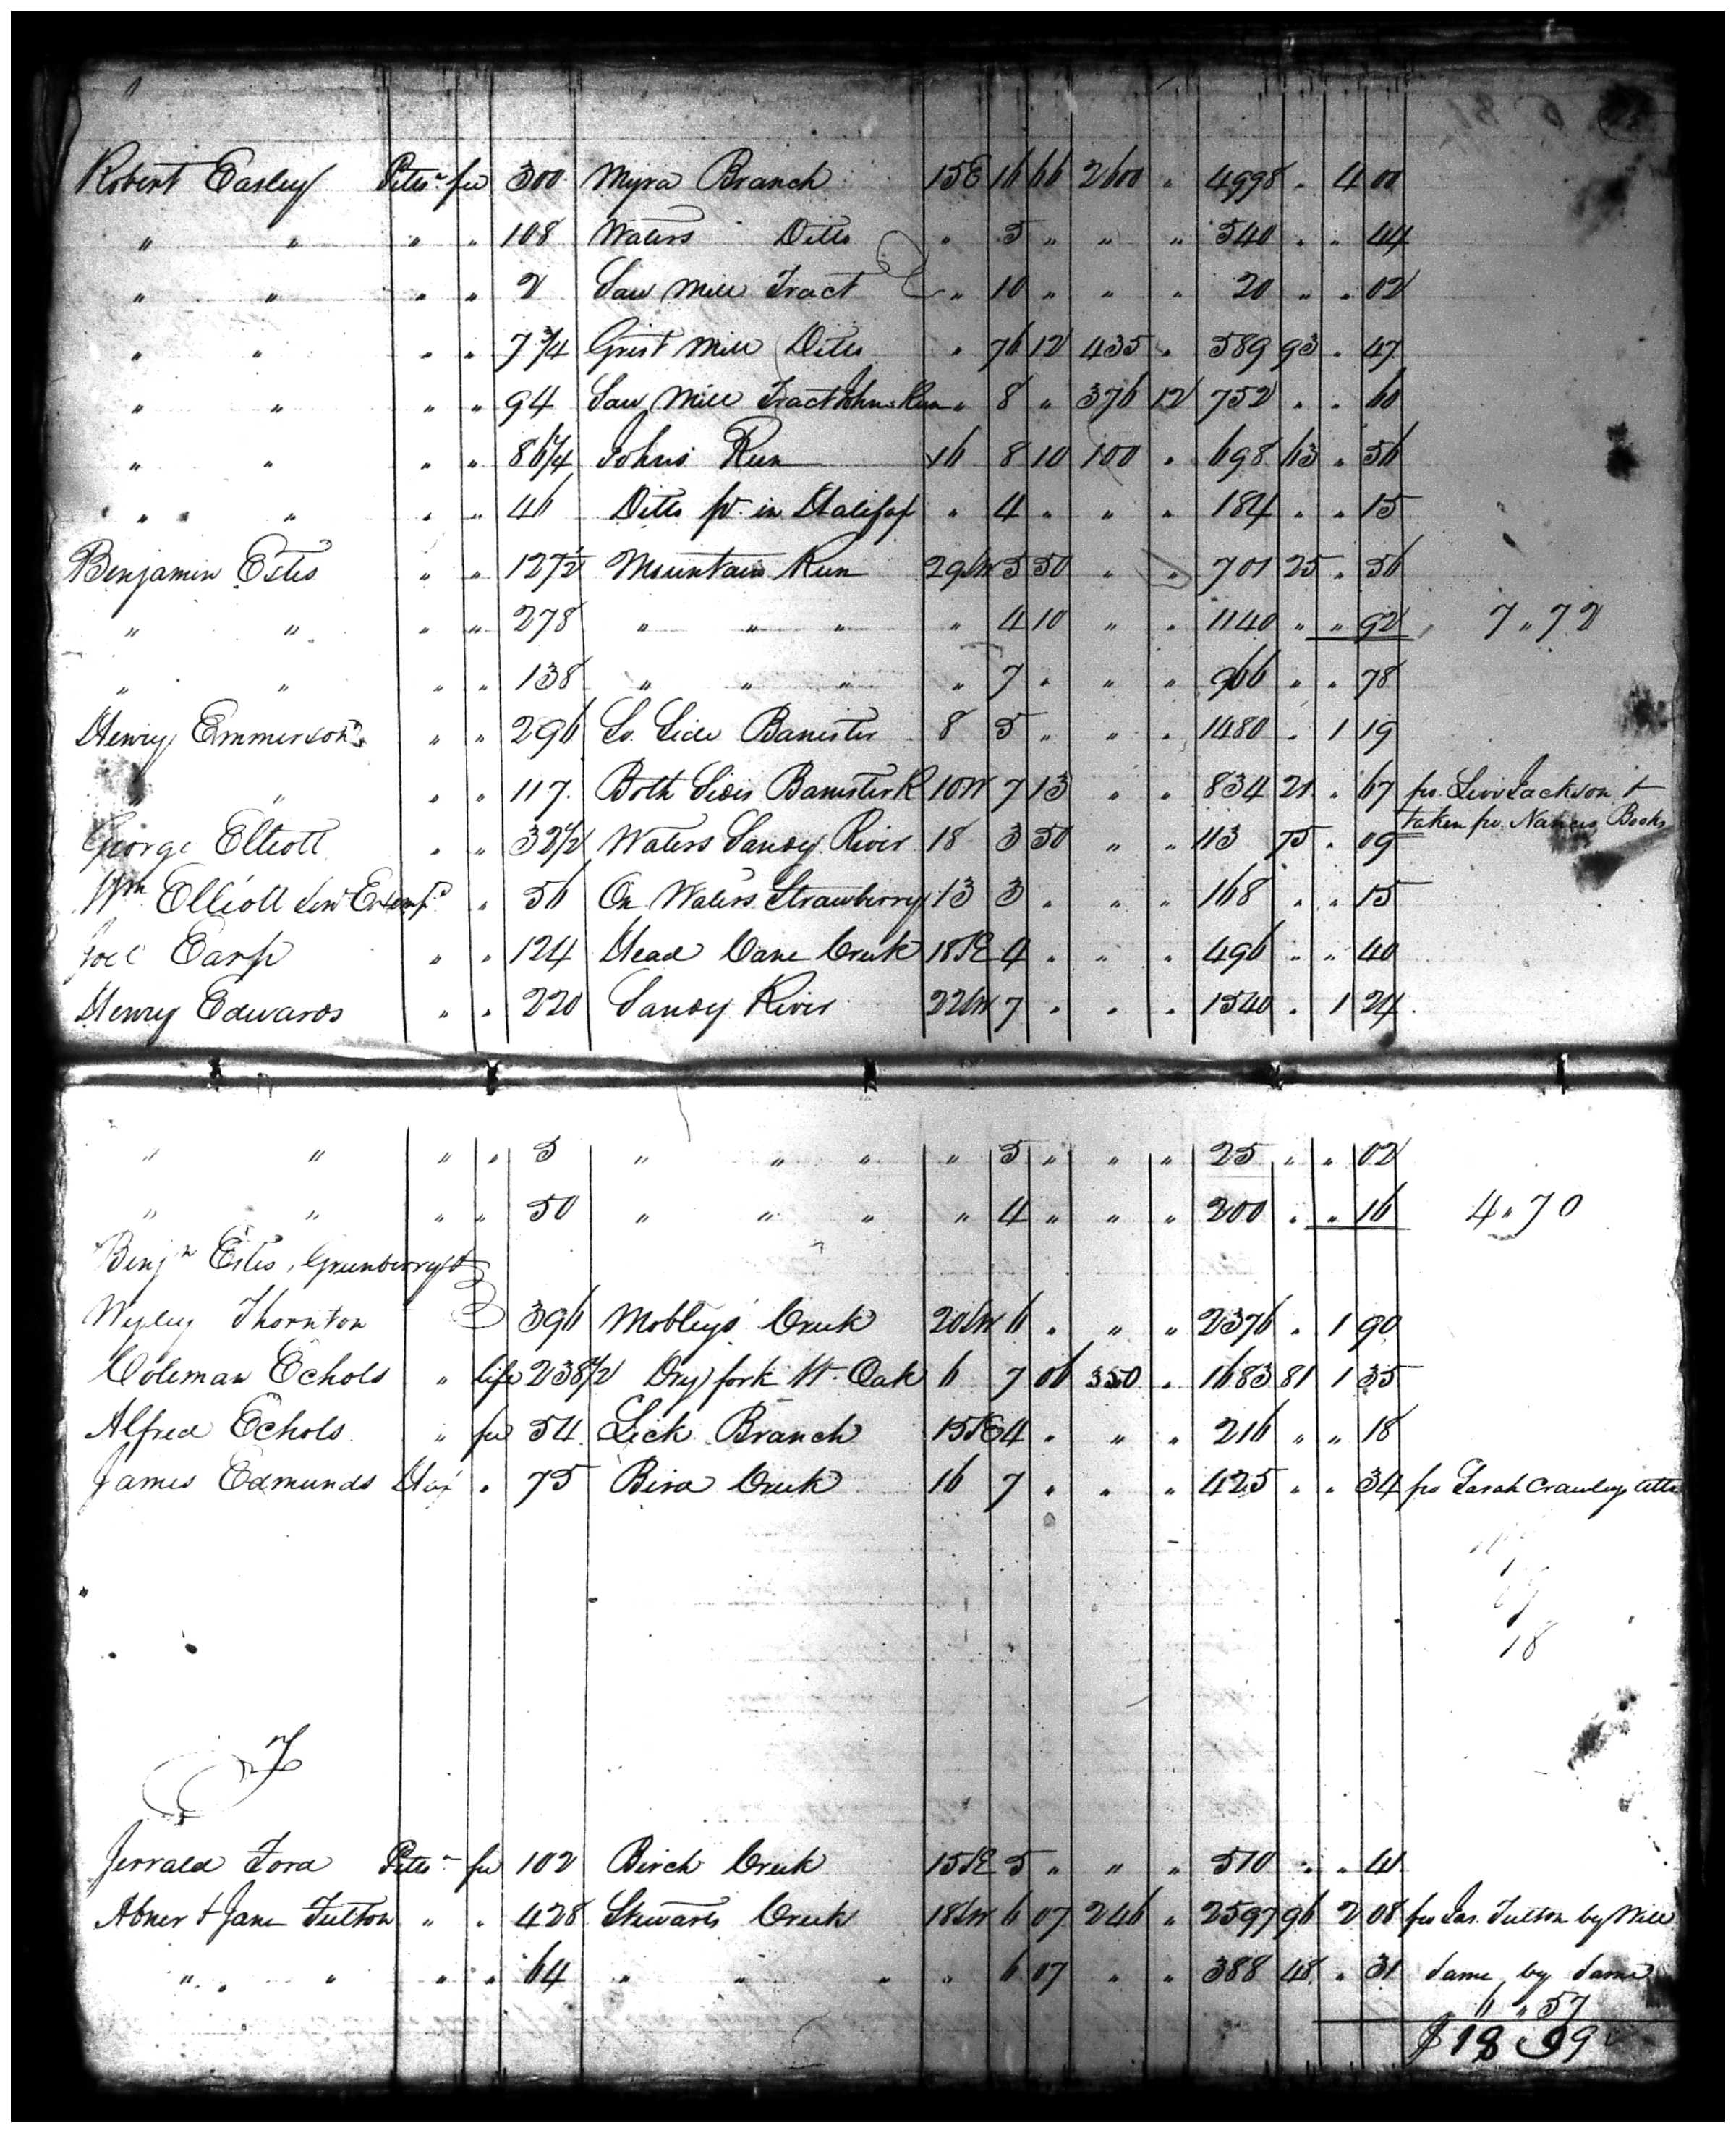 Robert Easley Pitts. fee 300 Myra Branch 15E 16 66 2600 " 4998 " 4 00
" " " " 108 Waters Ditto " 5 " " " 540 " " 44
" " " " 2 Saw Mill Tract " 10 " " " 20 " " 02
" " " " 7 3/4 Grist Mill Ditto " 76 12 435 " 589 93 " 47
" " " " 94 Saw Mill Tract Johns Run " 8 " 376 12 752 " " 60
" " " " 86 1/4 Johns Run 16 8 10 100 " 698 63 " 56
" " " " 46 Ditto pt. in Halifax " 4 " " " 184 " " 15
Benjamin Estes " " 127 1/2 Mountain Run 29SW 5 50 " " 701 25 " 56
" " " " 278 " " " " 4 10 " " 1140 " " 92 7 " 72
" " " " 138 " " " " 7 " " " 966 " " 78
Henry Emmerson " " 296 So. Side Banister 8 5 " " " 1480 " 1 19
" " " " 117 Both Sides Banister R 10W 7 13 " " 834 21 " 67 fr. Levi Jackson &
taken fr. Nances Books
George Elliott " " 32 1/2 Waters Sandy River 18 3 50 " " 113 75 " 09
Wm Elliott Senr " 56 On Waters Strawberry 13 3 " " " 168 " " 15
Joel Earp " " 124 Head Cane Creek 18SE 4 " " " 496 " " 40
Henry Edwards " " 220 Sandy River 22SW 7 " " " 1540 " 1 24
" " " " 5 " " " " 5 " " " 25 " " 02
" " " " 50 " " " " 4 " " " 200 " " 16 4 " 70
Benjn Estes, Greenberry &
Wyley Thornton 396 Mobleys Creek 20SW 6 " " " 2376 " 1 90
Coleman Echols " life 238 1/2 Dry fork W. Oak 6 7 06 350 " 1683 81 1 35
Alfred Echols " fee 54 Lick Branch 15SE 4 " " " 216 " " 18
James Edmunds Hax " 75 Bird Creek 16 7 " " " 425 " " 34 fr Sarah Crawleys
18
F
Jerrald Ford Pitts. fee 102 Birch Creek 15SE 5 " " " 510 " " 41
Abner & Jane Fulton " " 428 Stewarts Creek 18SW 6 07 246 " 2597 96 2 08 fr Jas. Fulton by Will
" " " " 64 " " " " 6 07 " " 388 48 " 31 Same by Same
6 " 57
$ 18 99